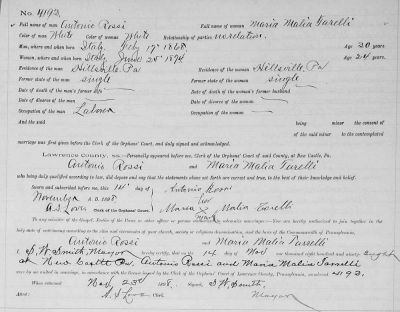 No. 4192
Full name of man Antonio Rossi Full name of woman Maria Malia Turelli
Color of man White Color of woman White Relationship of parties no relation.
Man, where and when born Italy, July 19th 1868 Age 20 years
Woman, where and when born Italy June 28th 1874 Age 24 years.
Residence of the man Hillsville, Pa Residence of the woman Hillsville, Pa
Former state of the man single Former state of the woman single
Date of death of the man's former wife Date of death of the woman's former husband
Date of divorce of the man Date of divorce of the woman
Occupation of the man Laborer Occupation of the woman
And the said being minor the consent of
of the said minor to the contemplated
marriage was first given before the Clerk of the Orphans' Court, and duly signed and acknowledged.
Lawrence County, ss.—Personally appeared before me, Clerk of the Orphans' Court of said county, at New Castle, Pa.
Antonio Rossi and Maria Malia Turelli
who being duly qualified according to law, did depose and say that the statements above set forth are correct and true, to the best of their knowledge and belief.
Sworn and subscribed before me, this 14th day of Antonio Rossi
November A.D. 1898 her
A.S. Love Clerk of the Orphans' Court. Maria X Malia Turelli
mark
To any minister of the Gospel, Justice of the Peace or other officer or person authorized by law to solemnize marriages:—You are hereby authorized to join together in the
holy state of matrimony according to the rites and ceremonies of your church, society or religious denomination, and the laws of the Commonwealth of Pennsylvania,
Antonio Rossi and Maria Malia Turelli
I S. W. Smith, Mayor hereby certify, that on the 14 day of Nov one thousand eight hundred and ninety Eight
at New Castle Pa. Antonio Rossi and Maria Malia Turelli
were by me united in marriage, in accordance with the license issued by the Clerk of the Orphans' Court of Lawrence County, Pennsylvania, numbered 4192.
When returned Nov, 23rd 1898. Signed S. W. Smith,
Attest: A. S. Love Clerk. Mayor